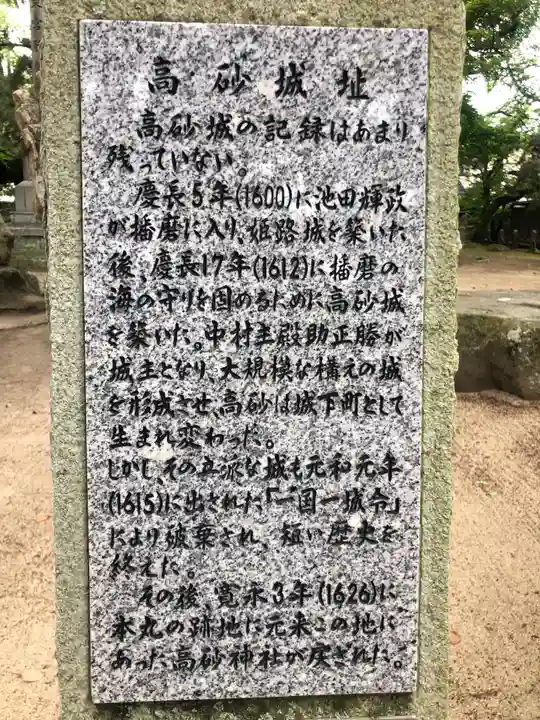 高砂城址
高砂城の記録はあまり
残っていない。
慶長5年(1600)に池田輝政
が播磨に入り、姫路城を築いた
後、慶長17年(1612)に播磨の
海の守りを固めるために高砂城
を築いた。中村主殿助正勝が
城主となり、大規模な構えの城
を形成させ、高砂は城下町として
生まれ変わった。
しかし、その立派な城も元和元年
(1615)に出された「一国一城令」
により破棄され、短い歴史を
終えた。
その後、寛永3年(1626)に
本丸の跡地に元来この地に
あった高砂神社が戻された。